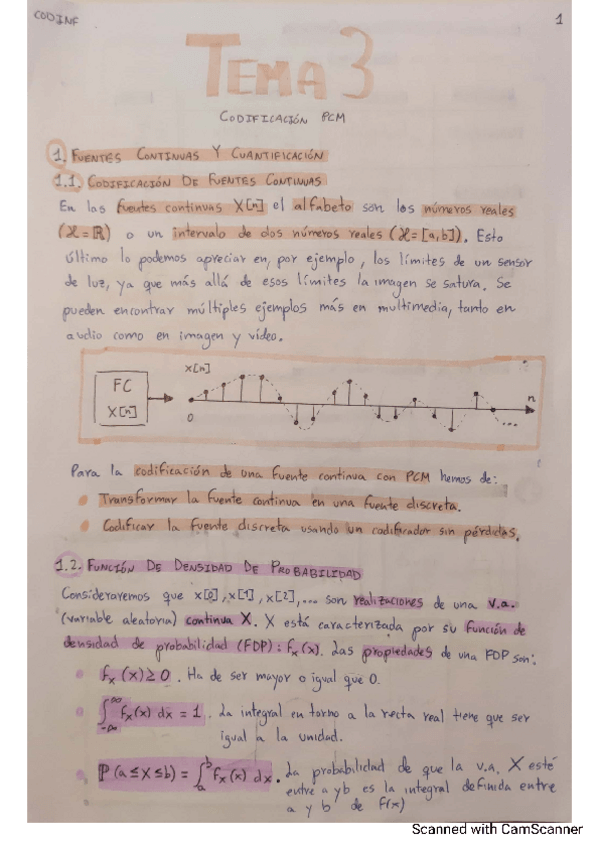 CODINF
1
TEMA 3
CODIFICACIÓN PCM
1. FUENTES CONTINUAS Y CUANTIFICACIÓN
1.1. CODIFICACIÓN DE FUENTES CONTINUAS
En las fuentes continuas X[n] el alfabeto son los números reales
(𝒳 = ℝ) o un intervalo de dos números reales (𝒳 = [a,b]). Esto
último lo podemos apreciar en, por ejemplo, los límites de un sensor
de luz, ya que más allá de esos límites la imagen se satura. Se
pueden encontrar múltiples ejemplos más en multimedia, tanto en
audio como en imagen y vídeo.
X[n]
FC
X[n]
0
n
...
Para la codificación de una fuente continua con PCM hemos de:
• Transformar la fuente continua en una fuente discreta.
• Codificar la fuente discreta usando un codificador sin pérdidas.
1.2. FUNCIÓN DE DENSIDAD DE PROBABILIDAD
Consideraremos que x[0], x[1], x[2],... son realizaciones de una v.a.
(variable aleatoria) continua X. X está caracterizada por su función de
densidad de probabilidad (FDP): fx(x). Las propiedades de una FDP son:
• fx(x) ≥ 0. Ha de ser mayor o igual que 0.
• ∫_{-∞}^{∞} fx(x) dx = 1. La integral en torno a la recta real tiene que ser
igual a la unidad.
• ℙ(a ≤ X ≤ b) = ∫_a^b fx(x) dx. La probabilidad de que la v.a. X esté
entre a y b es la integral definida entre
a y b de f(x)
Scanned with CamScanner